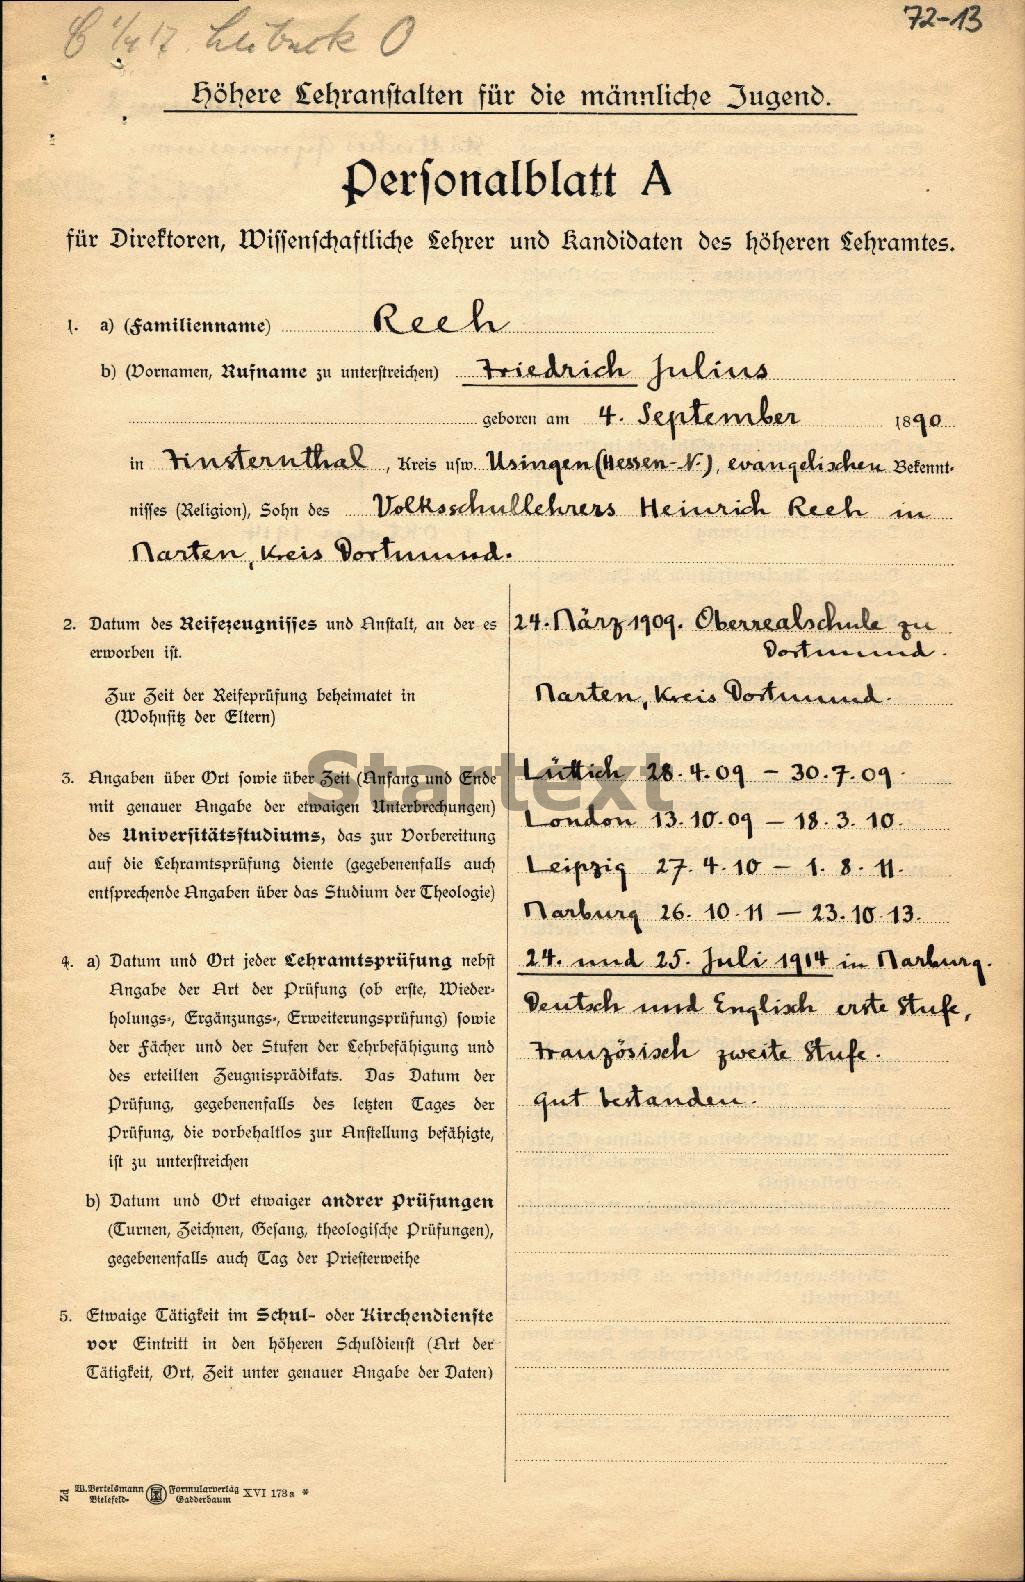 C 1/4 17. Lübeck O
72-13
Höhere Lehranstalten für die männliche Jugend.
Personalblatt A
für Direktoren, Wissenschaftliche Lehrer und Kandidaten des höheren Lehramtes.
1. a) (Familienname) Reeh
b) (Vornamen, Rufname zu unterstreichen) Friedrich Julius
geboren am 4. September 1890
in Finsternthal, Kreis usw. Usingen (Hessen-N.), evangelischen Bekennt-
nisses (Religion), Sohn des Volksschullehrers Heinrich Reeh in
Marten, Kreis Dortmund.
2. Datum des Reifezeugnisses und Anstalt, an der es
erworben ist.
24. März 1909. Oberrealschule zu
Dortmund.
Zur Zeit der Reifeprüfung beheimatet in
(Wohnsitz der Eltern)
Marten, Kreis Dortmund.
3. Angaben über Ort sowie über Zeit (Anfang und Ende
mit genauer Angabe der etwaigen Unterbrechungen)
des Universitätsstudiums, das zur Vorbereitung
auf die Lehramtsprüfung diente (gegebenenfalls auch
entsprechende Angaben über das Studium der Theologie)
Lüttich 28.4.09 – 30.7.09.
London 13.10.09 – 18.3.10.
Leipzig 27.4.10 – 1.8.11.
Marburg 26.10.11 – 23.10.13.
Startext
4. a) Datum und Ort jeder Lehramtsprüfung nebst
Angabe der Art der Prüfung (ob erste, Wieder-
holungs-, Ergänzungs-, Erweiterungsprüfung) sowie
der Fächer und der Stufen der Lehrbefähigung und
des erteilten Zeugnisprädikats. Das Datum der
Prüfung, gegebenenfalls des letzten Tages der
Prüfung, die vorbehaltlos zur Anstellung befähigte,
ist zu unterstreichen
24. und 25. Juli 1914 in Marburg.
Deutsch und Englisch erste Stufe,
Französisch zweite Stufe.
gut bestanden.
b) Datum und Ort etwaiger andrer Prüfungen
(Turnen, Zeichnen, Gesang, theologische Prüfungen),
gegebenenfalls auch Tag der Priesterweihe
5. Etwaige Tätigkeit im Schul- oder Kirchendienste
vor Eintritt in den höheren Schuldienst (Art der
Tätigkeit, Ort, Zeit unter genauer Angabe der Daten)
Zd W. Bertelsmann Formularverlag XVI 173a *
Bielefeld- Gadderbaum